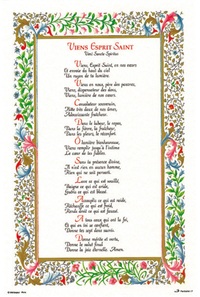 VIENS ESPRIT SAINT
Veni Sancte Spiritus
Viens, Esprit Saint, en nos cœurs
Et envoie du haut du ciel
Un rayon de ta lumière.
Viens en nous, père des pauvres,
Viens, dispensateur des dons,
Viens, lumière de nos cœurs.
Consolateur souverain,
Hôte très doux de nos âmes,
Adoucissante fraîcheur.
Dans le labeur, le repos,
Dans la fièvre, la fraîcheur,
Dans les pleurs, le réconfort.
O lumière bienheureuse,
Viens remplir jusqu'à l'intime
Le cœur de tes fidèles.
Sans ta puissance divine,
Il n'est rien en aucun homme,
Rien qui ne soit perverti.
Lave ce qui est souillé,
Baigne ce qui est aride,
Guéris ce qui est blessé.
Assouplis ce qui est raide,
Réchauffe ce qui est froid,
Rends droit ce qui est faussé.
A tous ceux qui ont la foi,
Et qui en toi se confient,
Donne tes sept dons sacrés.
Donne mérite et vertu,
Donne le salut final
Donne la joie éternelle. Amen.